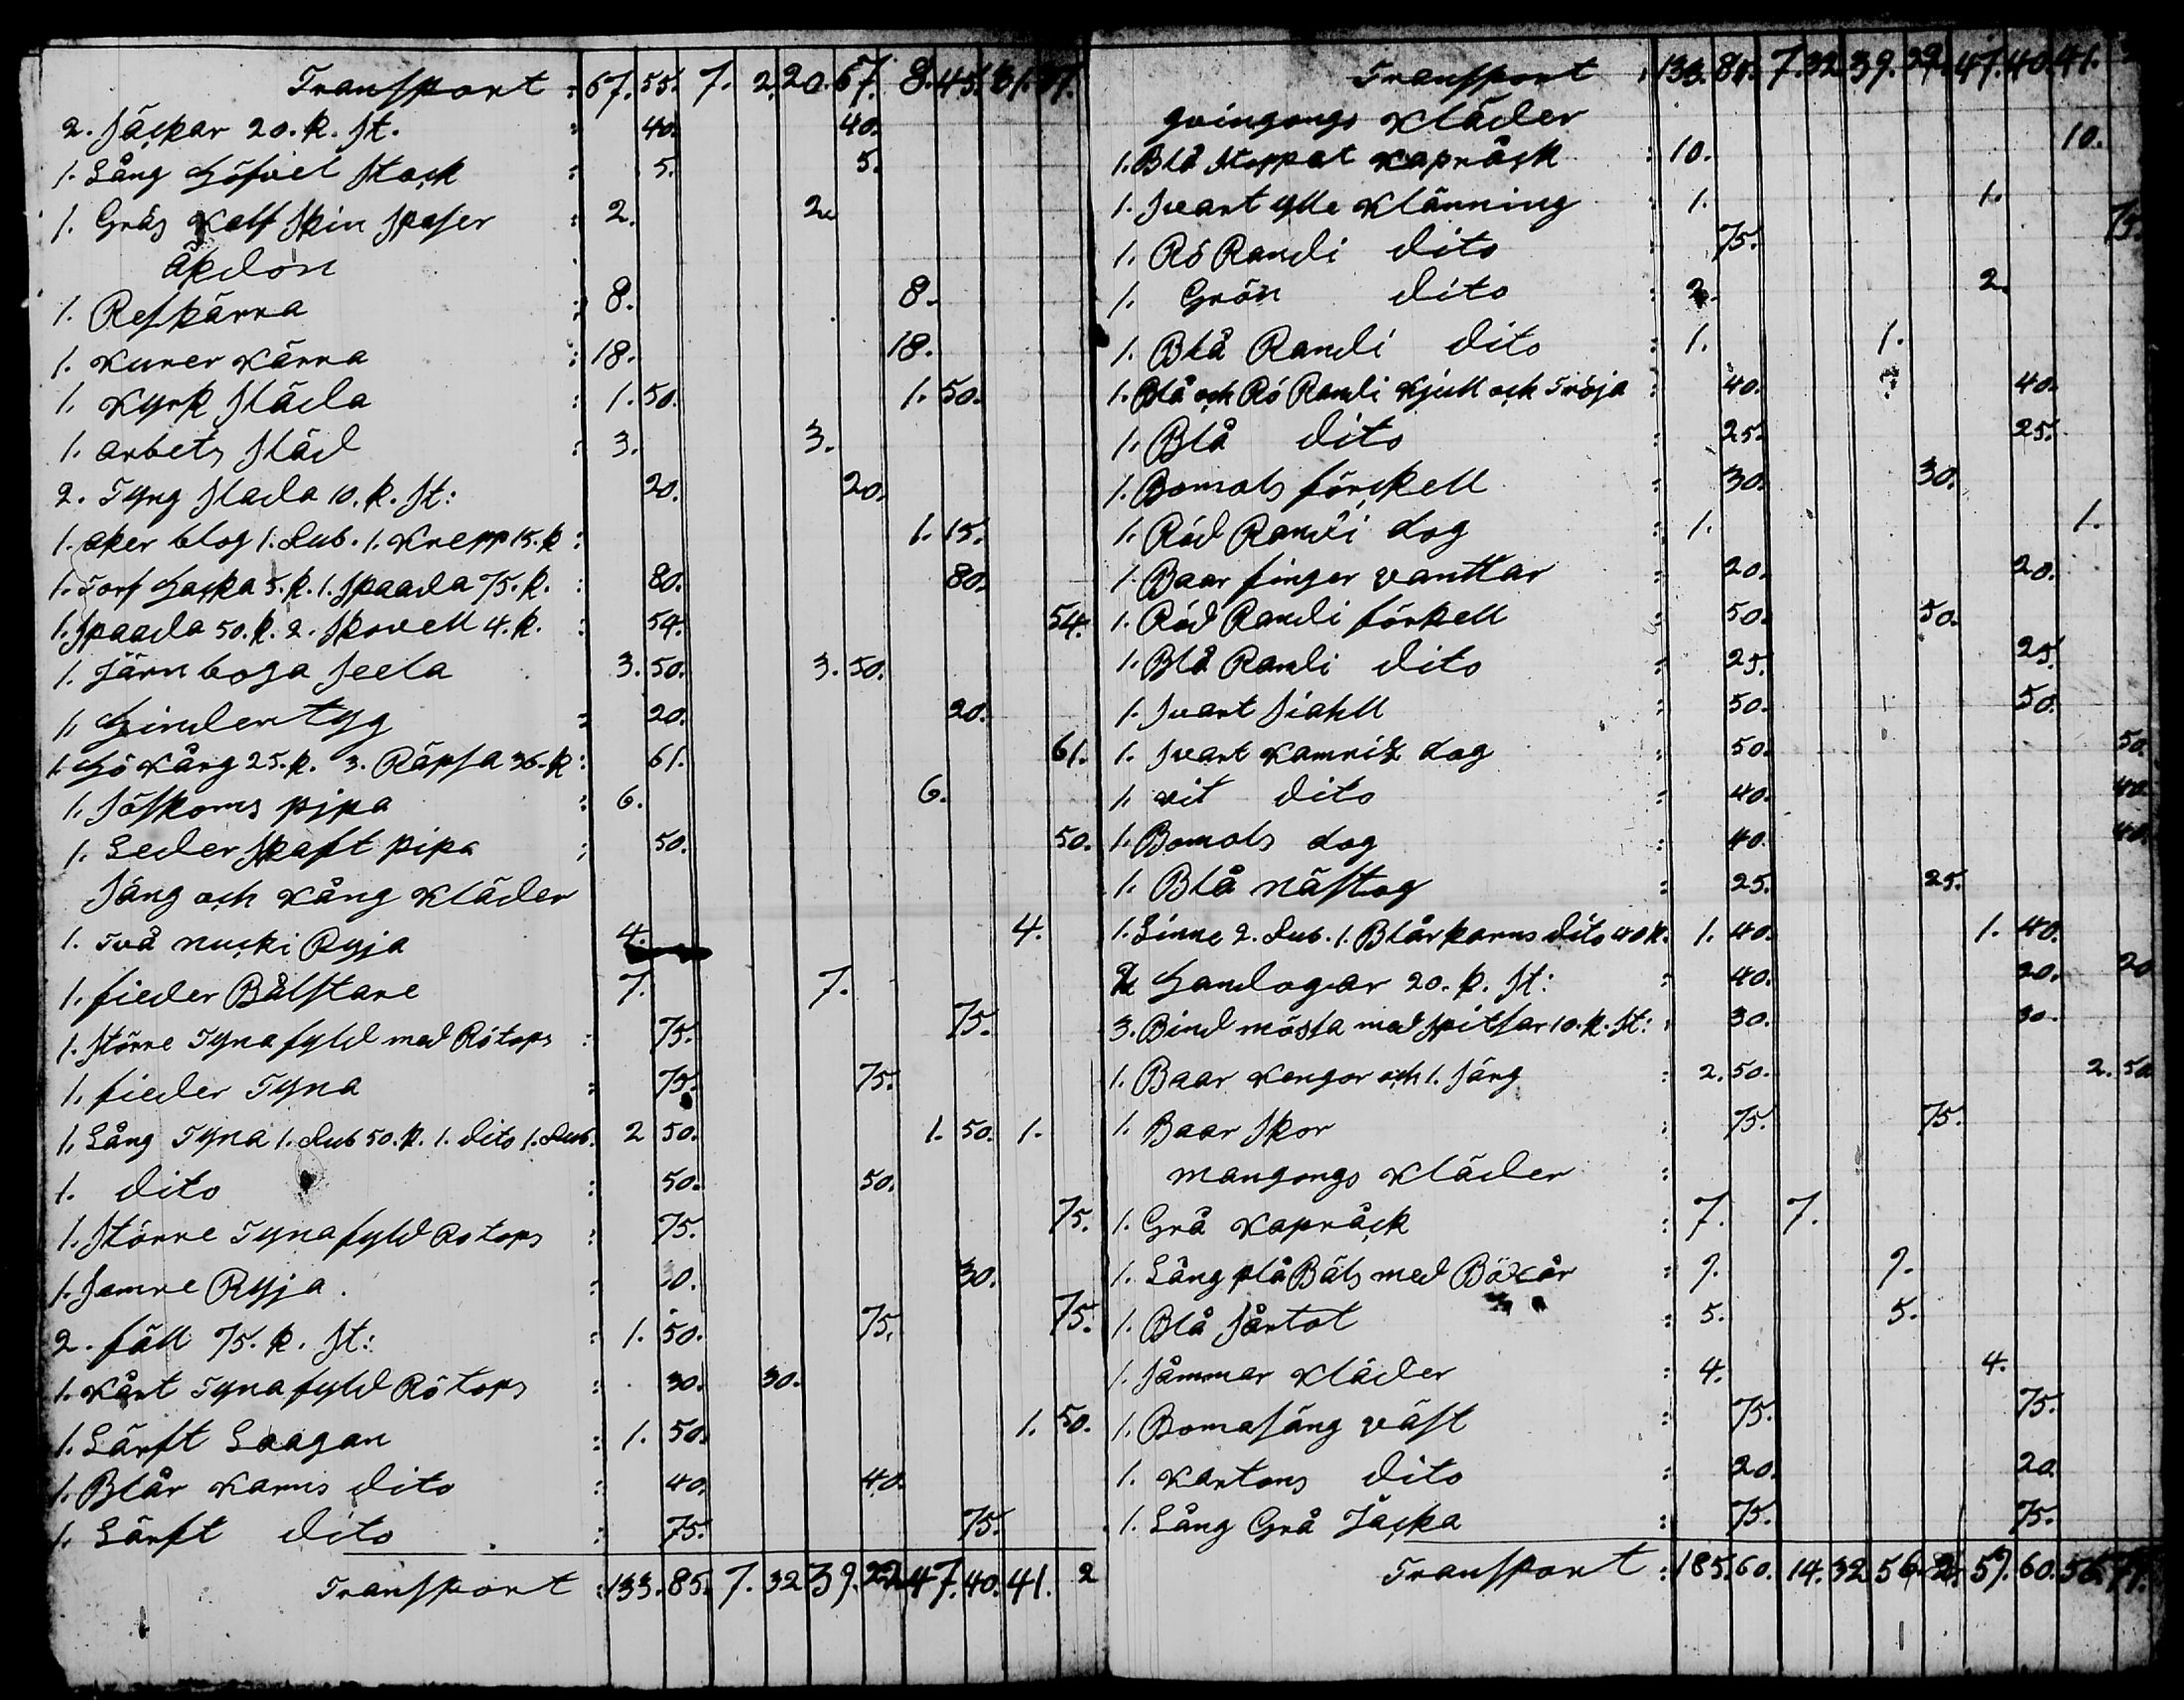 Transport : 67. 55. 7. 2. 20. 67. 8. 45. 31. 37.
2. Säckar 20. k. St. : 40. 40.
1. Lång Höfvel Stock : 5. 5.
1. Gråg Kalf Skin : 2. 2.
Åkdon
1. Reskärra : 8. 8.
1. Kurer Kärra : 18. 18.
1. Kyrk Släda : 1. 50. 1. 50.
1. arbets Släd : 3. 3.
2. Tyng Slada 10. k. St: 20. 20.
1. åker blog 1. Rub. 1. Krepp 15. k : 1. 15.
1. Torf Hacka 5. k. 1. Spaada 75. k. : 80. 80.
1. Spaada 50. k. 2. Skovell 4. k. : 54. 54.
1. Järn boga Seela 3. 50. 3. 50.
1. Hindertyg : 20. 20.
1. Hö Kårg 25. k. 3. Räpsa 36. k : 61. 61.
1. Söskoms pipa : 6. 6.
1. Leder Skaft pipa : 50. 50.
Säng och Kång Kläder
1. Två nucki Ryja 4. 4.
1. fieder Bålstare 7. 7.
1. Större Tyna fyld med Rötops : 75. 75.
1. fieder Tyna : 75. 75.
1. Lång Tyna 1. Rub 50. k. 1. dito 1. Rub. 2 50. 1. 50. 1.
1. dito : 50. 50.
1. Större Tyna fyld Rotops : 75. 75.
1. Samre Ryja. : 30. 30.
2. fäll 75. k. St: : 1. 50. 75. 75.
1. Kårt Tyna fyld Rötops : 30. 30.
1. Lärft Laagan : 1. 50. 1. 50.
1. Blår Karns dito : 40. 40.
1. Lärft dito : 75. 75.
Transport : 133. 85. 7. 32 39. 22 47. 40. 41. 2
Transport : 133. 85. 7. 32 39. 22. 47. 40. 41.
gvingongs Kläder
1. Blå Stoppat Kapråck : 10. 10.
1. Svart ylle Klänning : 1. 1.
1. Rö Randi dito : 75. 75.
1. Grön dito : 2. 2.
1. Blå Randi dito : 1. 1.
1. Blå och Rö Randi Kjull och Tröja : 40. 40.
1. Blå dito : 25. 25.
1. Bomols förckell : 30. 30.
1. Röd Randi dog : 1. 1.
1. Baar finger vanttar : 20. 20.
1. Röd Randi förkell : 50. 50.
1. Blå Randi dito : 25. 25.
1. Svart Siahll : 50. 50.
1. Svart Kamriz dog : 50. 50.
1. vit dito : 40. 40.
1. Bomols dog : 40. 40.
1. Blå nästog : 25. 25.
1. Linne 2. Rub. 1. Blårkarns dito 40 k. 1. 40. 1. 40.
2 Handogar 20. k. St: : 40. 20. 20
3. Bind mössa med Spitsar 10. k. St: 30. 30.
1. Baar Kengor och 1. Särg : 2. 50. 2. 50
1. Baar Skor : 75. 75.
mangongs Kläder :
1. Grå Kapråck : 7. 7.
1. Lång plå Bäls med Böxår : 9. 9.
1. Blå Sårtot : 5. 5.
1. Såmmar Kläder : 4. 4.
1. Bomasäng väst : 75. 75.
1. Kartons dito : 20. 20
1. Lång Grå Jacka : 75. 75.
Transport : 185. 60. 14. 32 56. 2. 57. 60. 56. 77.